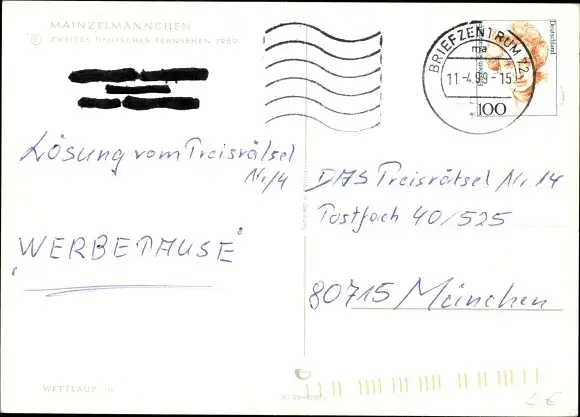 MAINZELMÄNNCHEN
© ZWEITES DEUTSCHES FERNSEHEN 1969
BRIEFZENTRUM
ma
11.-4.99-15
Deutschland
100
Lösung vom Preisrätsel
Nr. 14
"WERBEPAUSE"
DAS Preisrätsel Nr. 14
Postfach 40/525
80715 München
WETTLAUF
2 €